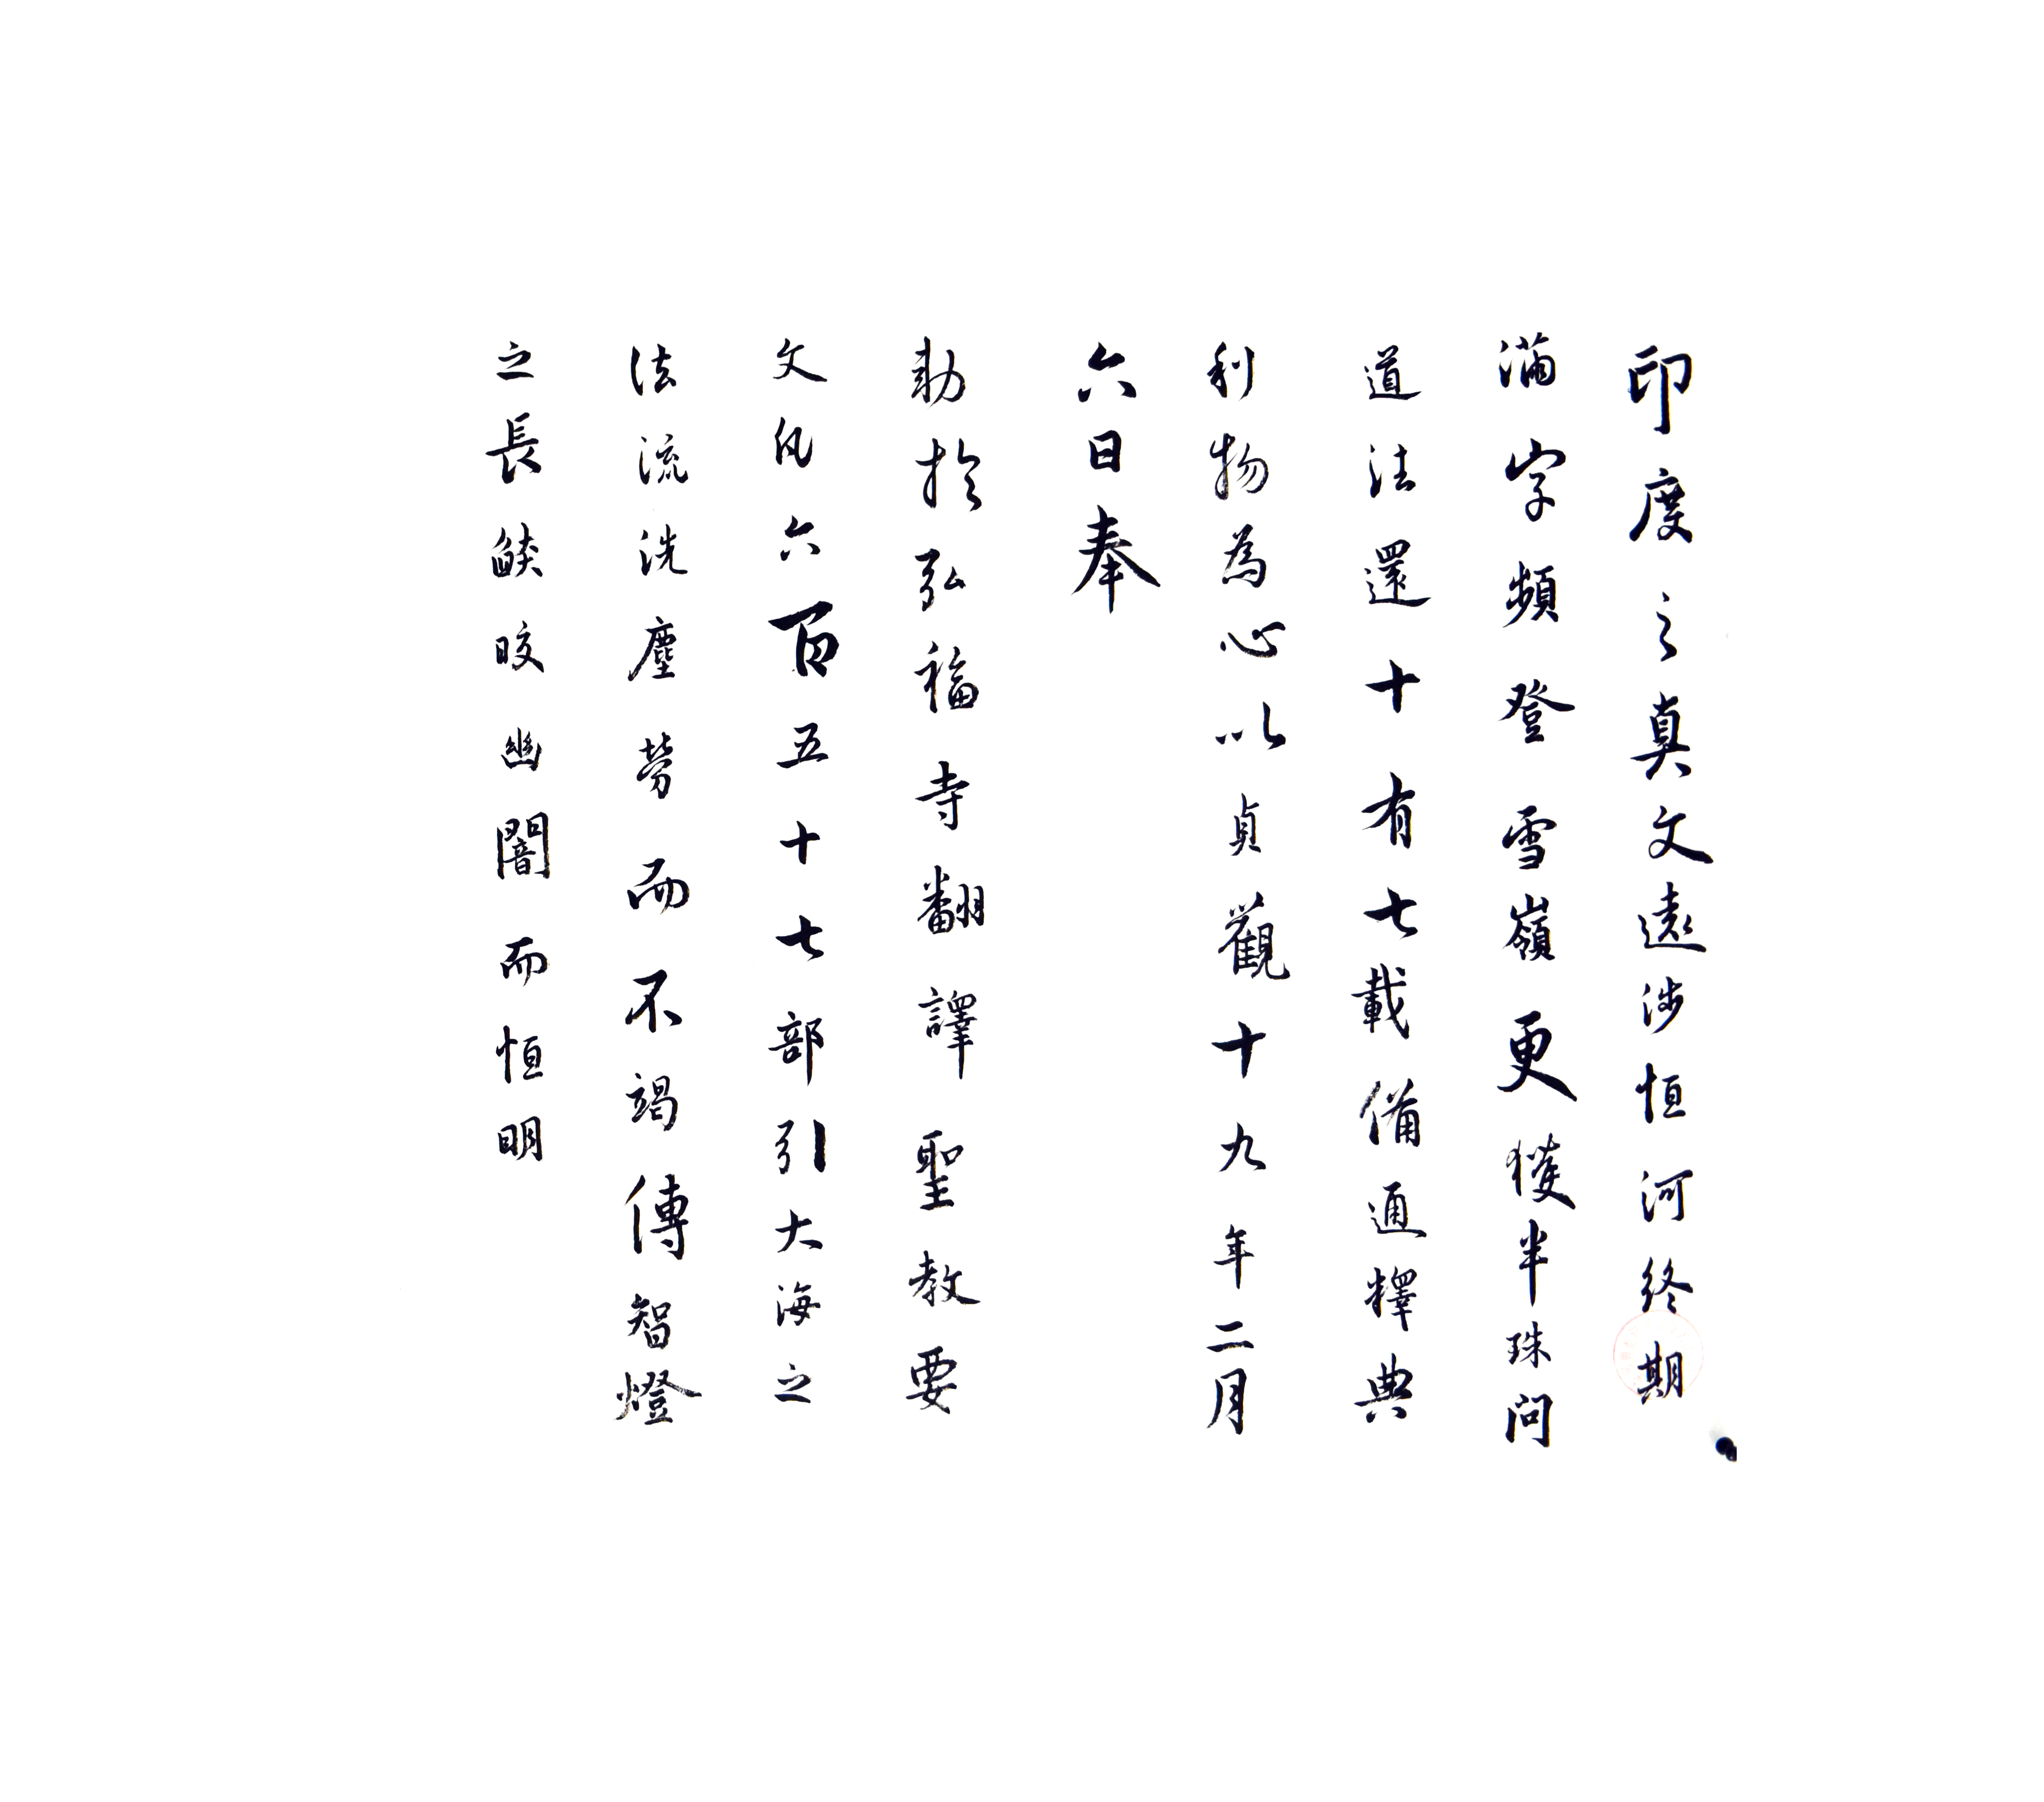 印度之真文遠涉恒河終期
滿字頻登雪嶺更獲半珠問
道法還十有七載備通釋典
利物為心以貞觀十九年二月
六日奉
勅於弘福寺翻譯聖教要
文凡六百五十七部引大海之
法流洗塵勞而不竭傳智燈
之長燄皎幽闇而恒明